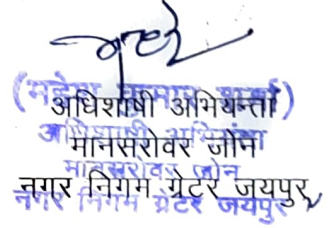 (महेश कुमार शर्मा)
अधिशाषी अभियन्ता
अधिशाषी अभियंता
मानसरोवर जोन
मानसरोवर जोन
नगर निगम ग्रेटर जयपुर
नगर निगम ग्रेटर जयपुर